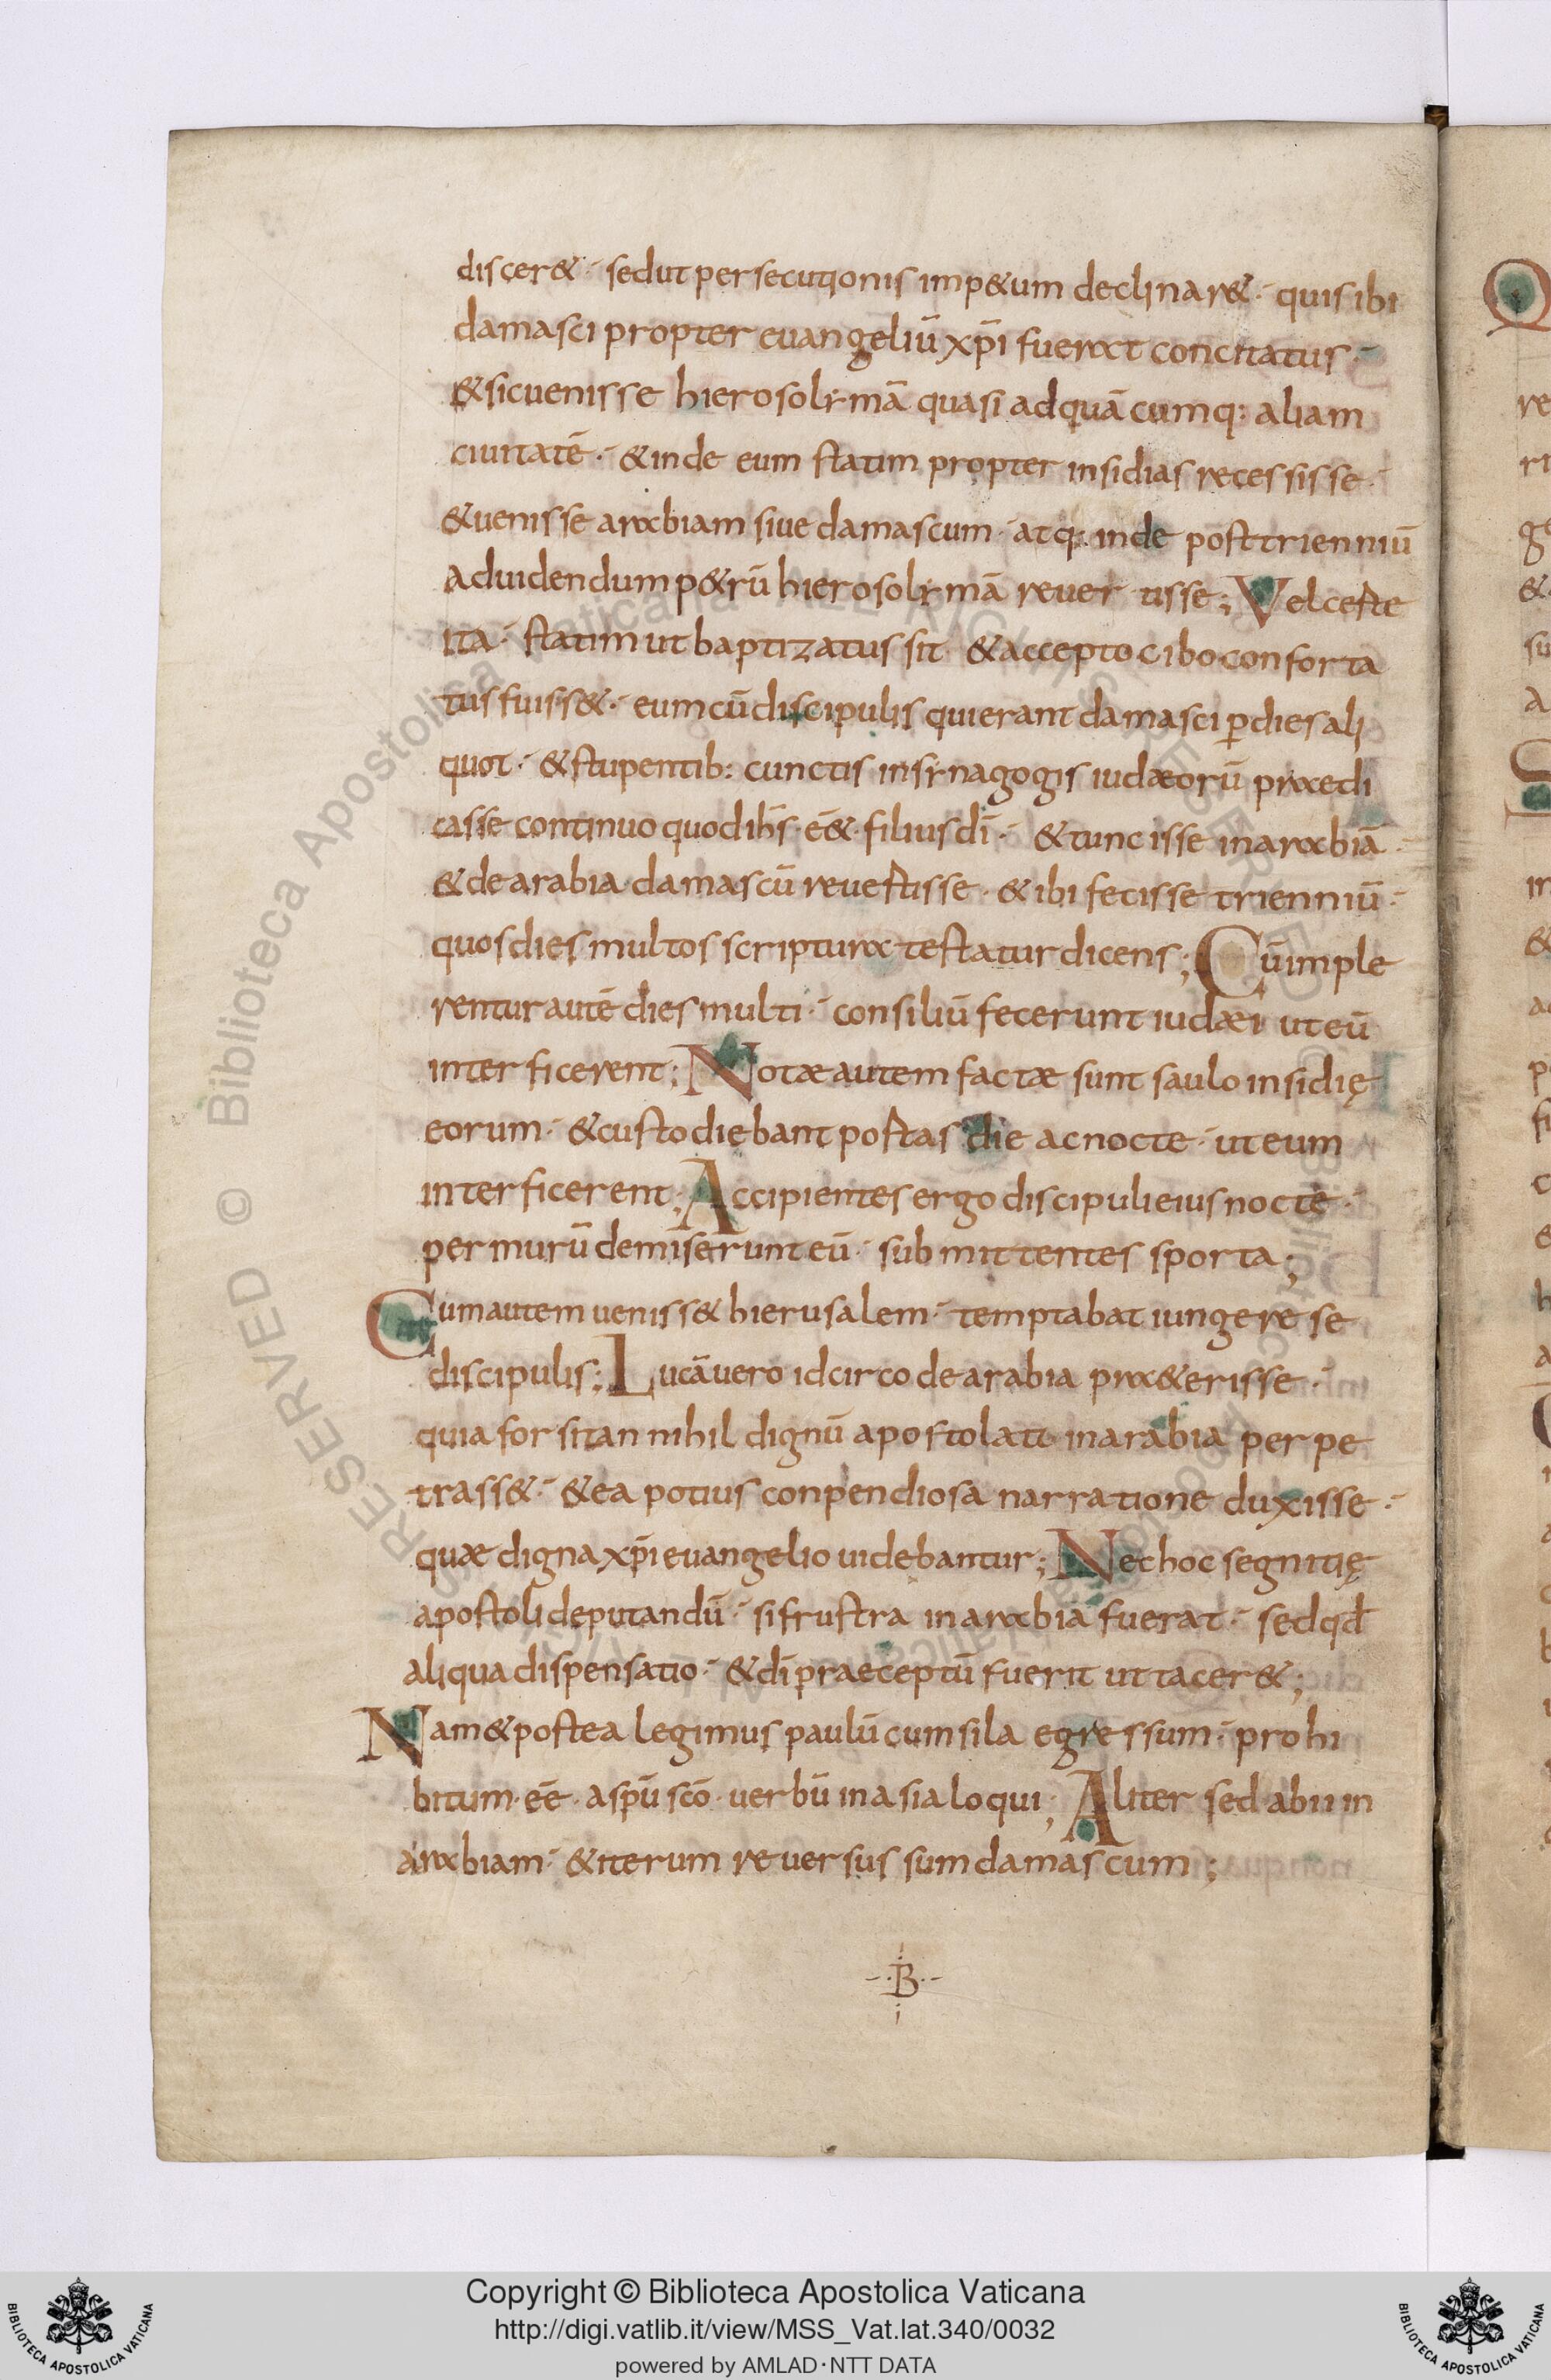 discer& · sed ut persecutionis imp&um declinar& · qui sibi
damasci propter euangeliū xp̄i fuerat concitatus ·
& sic uenisse hierosolymā quasi ad quācumq: aliam
ciuitatē · & inde eum statim propter insidias recessisse ·
& uenisse arabiam siue damascum · atq: inde post trienniū
ad uidendum p&rū hierosolymā reuertisse; Vel certe
ita · statim ut baptizatus sit & accepto cibo conforta
tus fuiss& · eum cū discipulis qui erant damasci p̄ dies ali
quot · & stupentib: cunctis in synagogis iudæorū praedi
casse continuo quod ih̄s · ēē& · filius dī · & tunc isse in arabiā ·
& de arabia damascū reuertisse · & ibi fecisse trienniū ·
quos dies multos scriptura testatur dicens; Cū imple
rentur autē dies multi · consiliū fecerunt iudæi ut eū
interficerent; Notæ autem factæ sunt saulo insidię
eorum · & custodiebant portas die ac nocte · ut eum
interficerent; Accipientes ergo discipuli eius nocte ·
per murū demiserunt eū · submittentes sporta;
Cum autem ueniss& hierusalem · temptabat iungere se
discipulis; Lucā uero idcirco de arabia præ&erisse ·
quia forsitan nihil dignū apostolatu in arabia perpe
trass& · & ea potius conpendiosa narratione duxisse ·
quæ digna xp̄i euangelio uidebantur; Nec hoc segnitię
apostoli deputandū · si frustra in arabia fuerat · sed qd̄
aliqua dispensatio · & dī praeceptū fuerit ut tacer&;
Nam & postea legimus paulū cum sila egressum · prohi
bitum · ēē · a sp̄u sc̄o · uerbū in asia loqui; Aliter sed abii in
arabiam · & iterum reuersus sum damascum;
· B ·
Copyright © Biblioteca Apostolica Vaticana
http://digi.vatlib.it/view/MSS_Vat.lat.340/0032
powered by AMLAD·NTT DATA
BIBLIOTECA APOSTOLICA VATICANA
BIBLIOTECA APOSTOLICA VATICANA